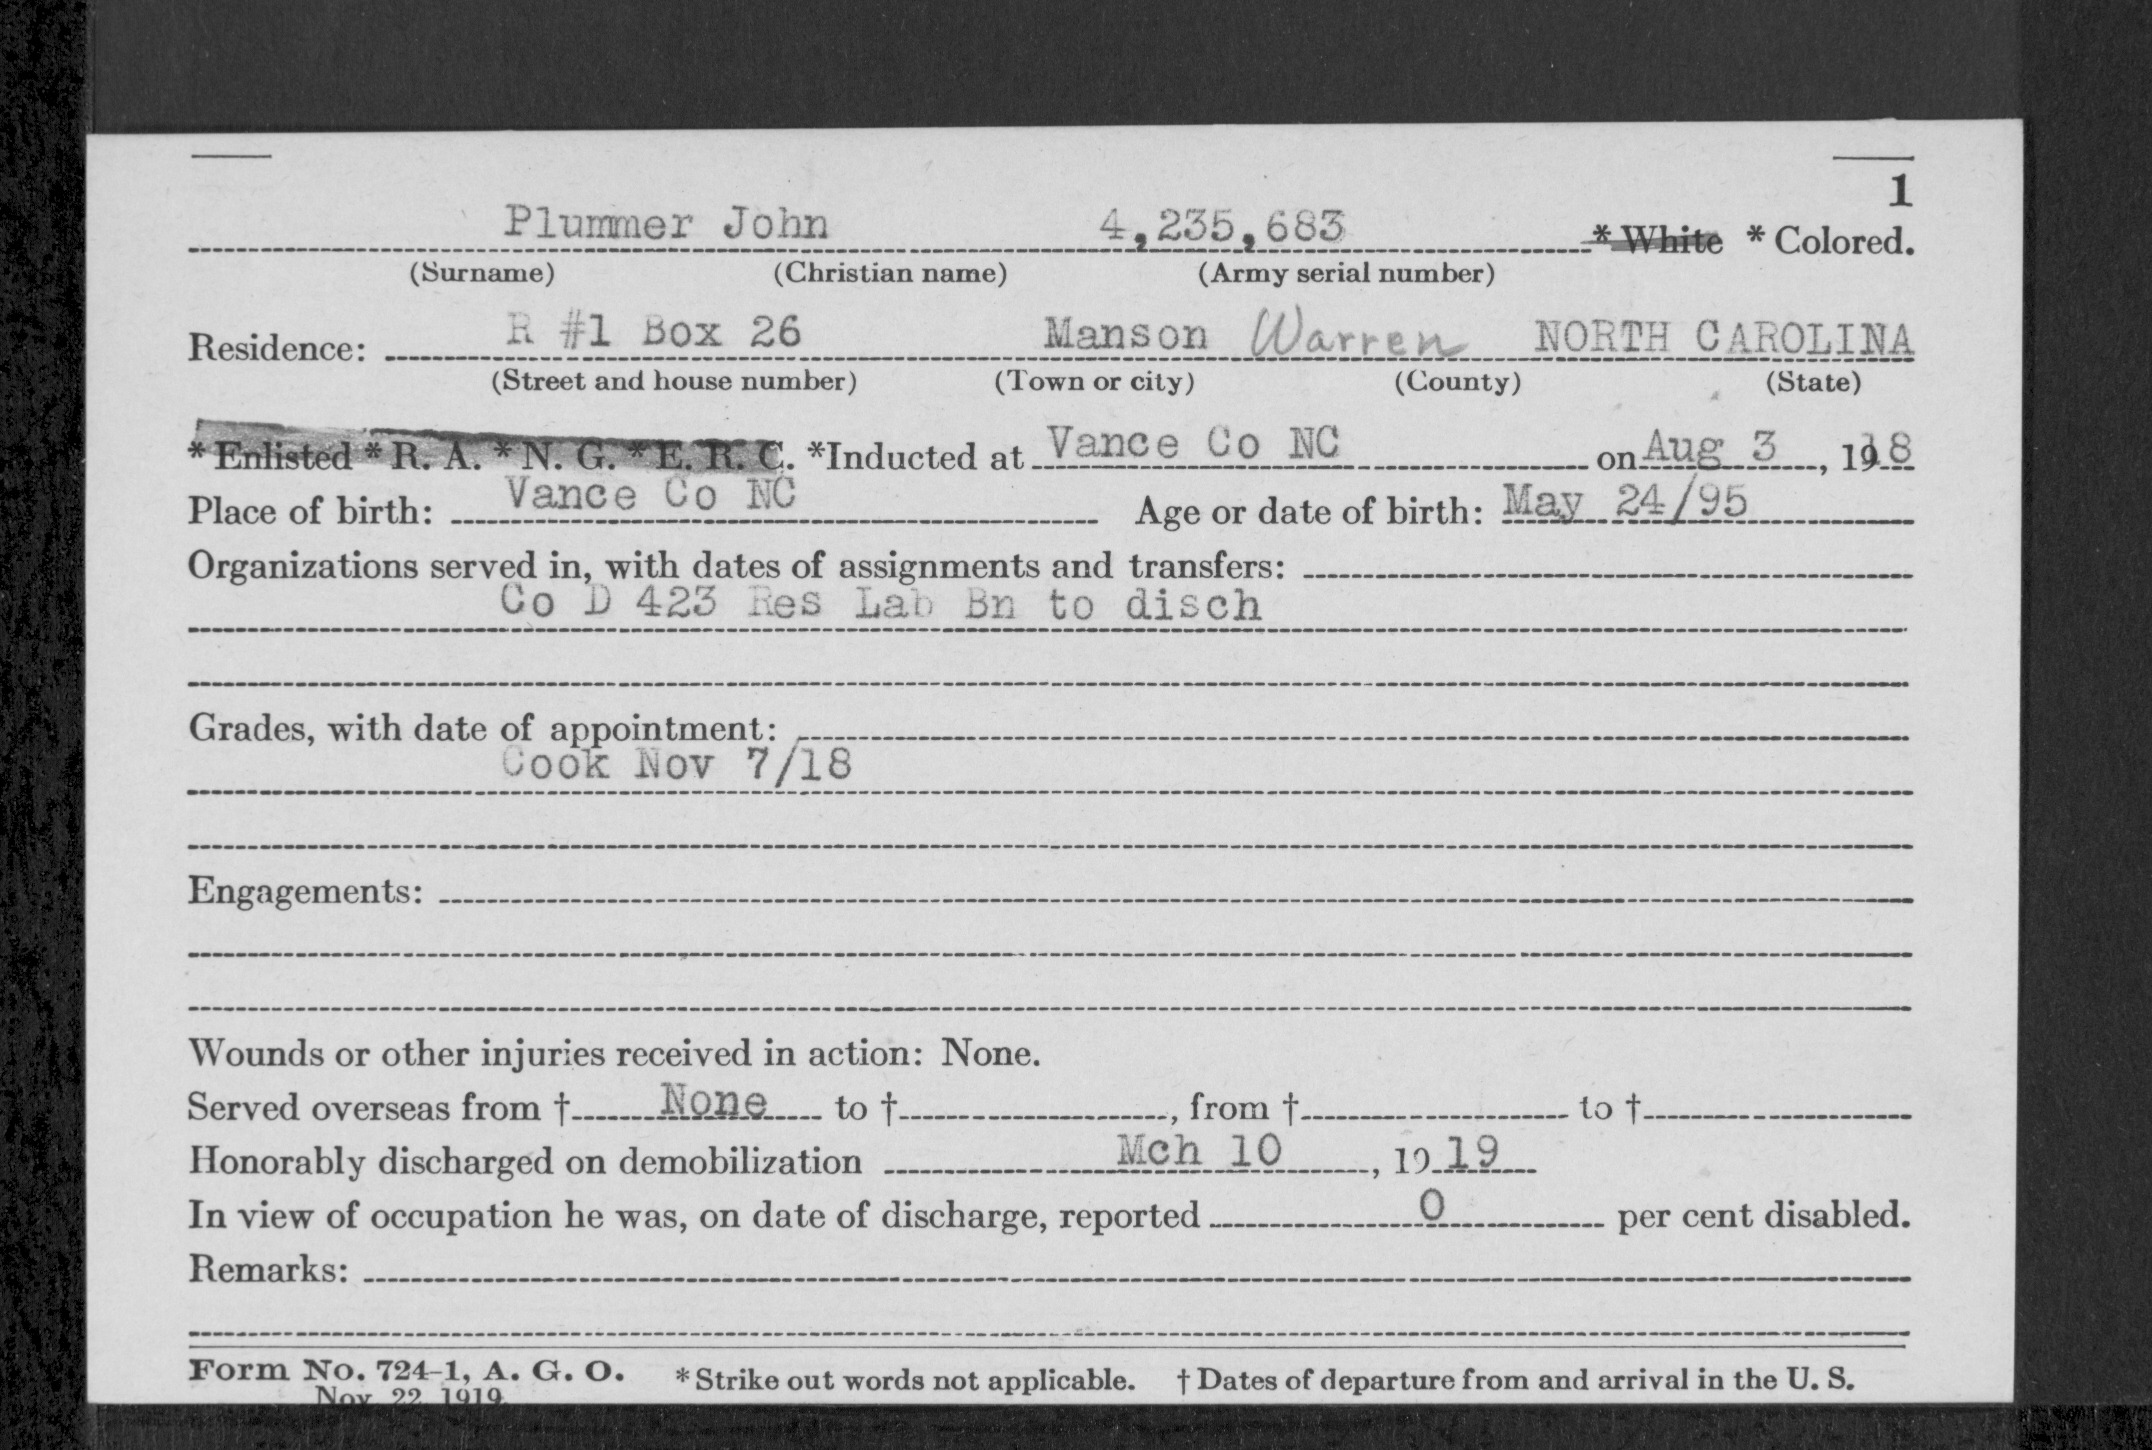 1
Plummer John 4,235,683 * White * Colored.
(Surname) (Christian name) (Army serial number)
Residence: R #1 Box 26 Manson Warren NORTH CAROLINA
(Street and house number) (Town or city) (County) (State)
* Enlisted * R. A. * N. G. * E. R. C. *Inducted at Vance Co NC on Aug 3, 1918
Place of birth: Vance Co NC Age or date of birth: May 24/95
Organizations served in, with dates of assignments and transfers:
Co D 423 Res Lab Bn to disch
Grades, with date of appointment:
Cook Nov 7/18
Engagements:
Wounds or other injuries received in action: None.
Served overseas from † None to †, from † to †
Honorably discharged on demobilization Mch 10, 1919
In view of occupation he was, on date of discharge, reported 0 per cent disabled.
Remarks:
Form No. 724-1, A. G. O. * Strike out words not applicable. † Dates of departure from and arrival in the U. S.
Nov. 22, 1919.